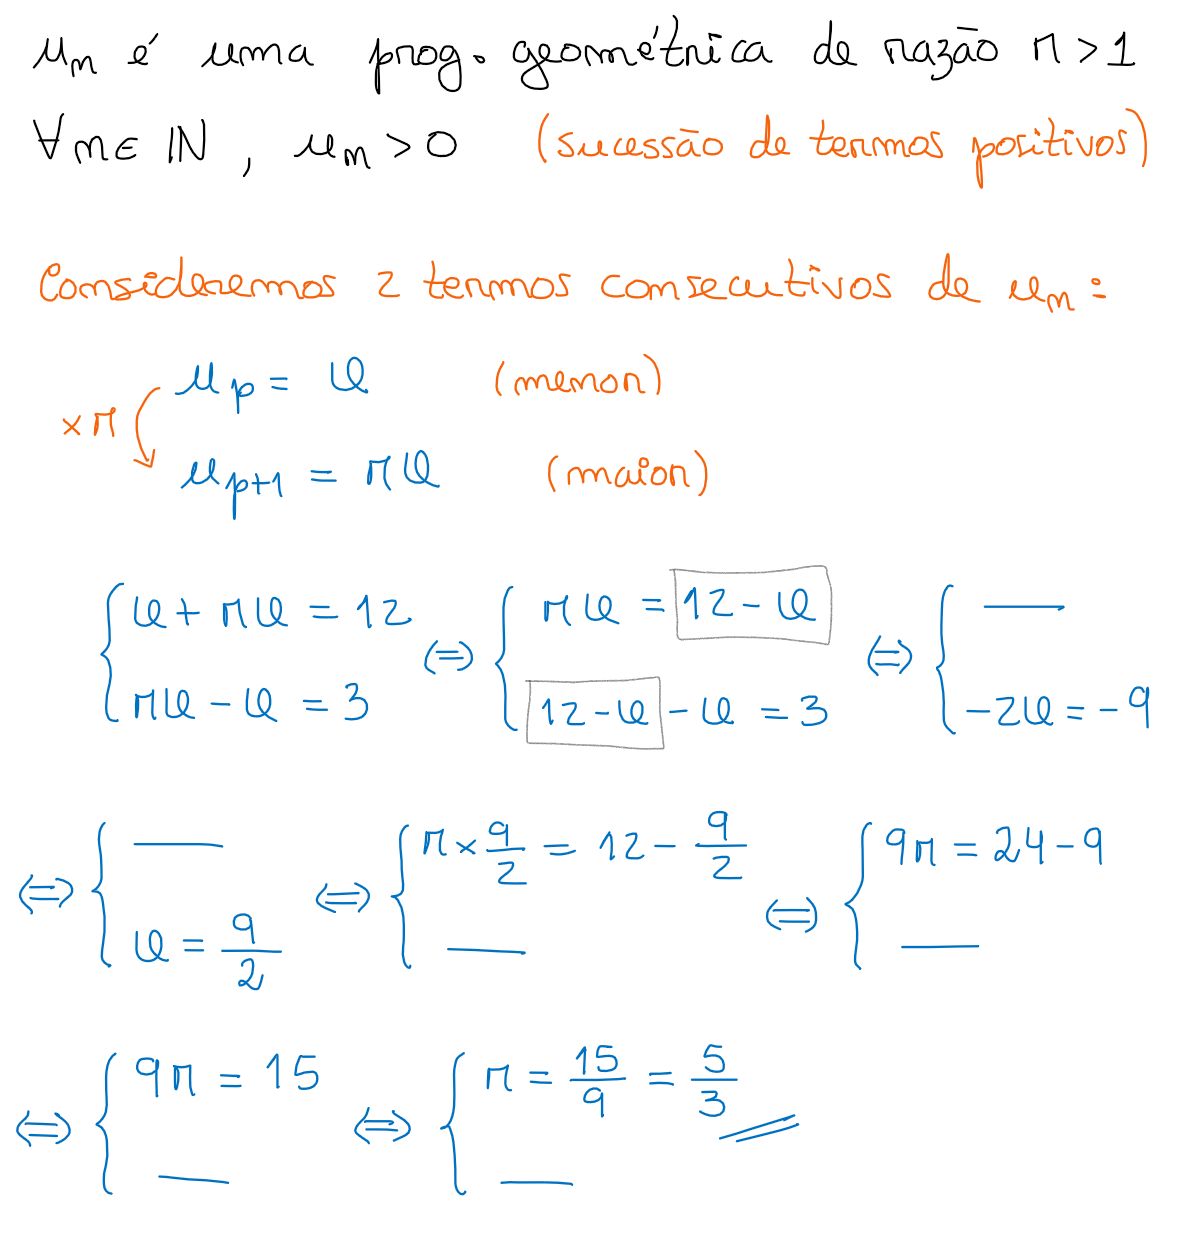 uₙ é uma prog. geométrica de razão r > 1
∀n∈ℕ, uₙ > 0 (sucessão de termos positivos)
Consideremos 2 termos consecutivos de uₙ :
u_p = a (menor)
× r
u_{p+1} = r a (maior)
{ a + r a = 12 ⇔ { r a = 12 - a ⇔ { ——
{ r a - a = 3 { 12 - a - a = 3 { -2a = -9
⇔ { —— ⇔ { r × 9/2 = 12 - 9/2 ⇔ { 9r = 24 - 9
{ a = 9/2 { —— { ——
⇔ { 9r = 15 ⇔ { r = 15/9 = 5/3
{ —— { ——